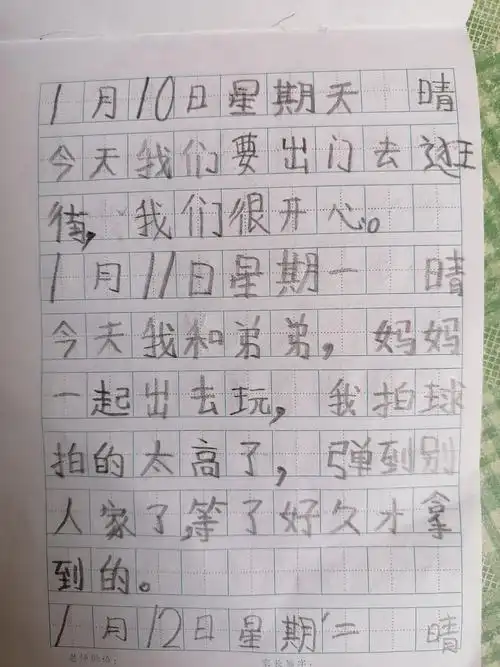 1月10日星期天 晴
今天我们要出门去逛
街,我们很开心。
1月11日星期一 晴
今天我和弟弟,妈妈
一起出去玩,我拍球
拍的太高了,弹到别
人家了,等了好久才拿
到的。
1月12日星期二 晴